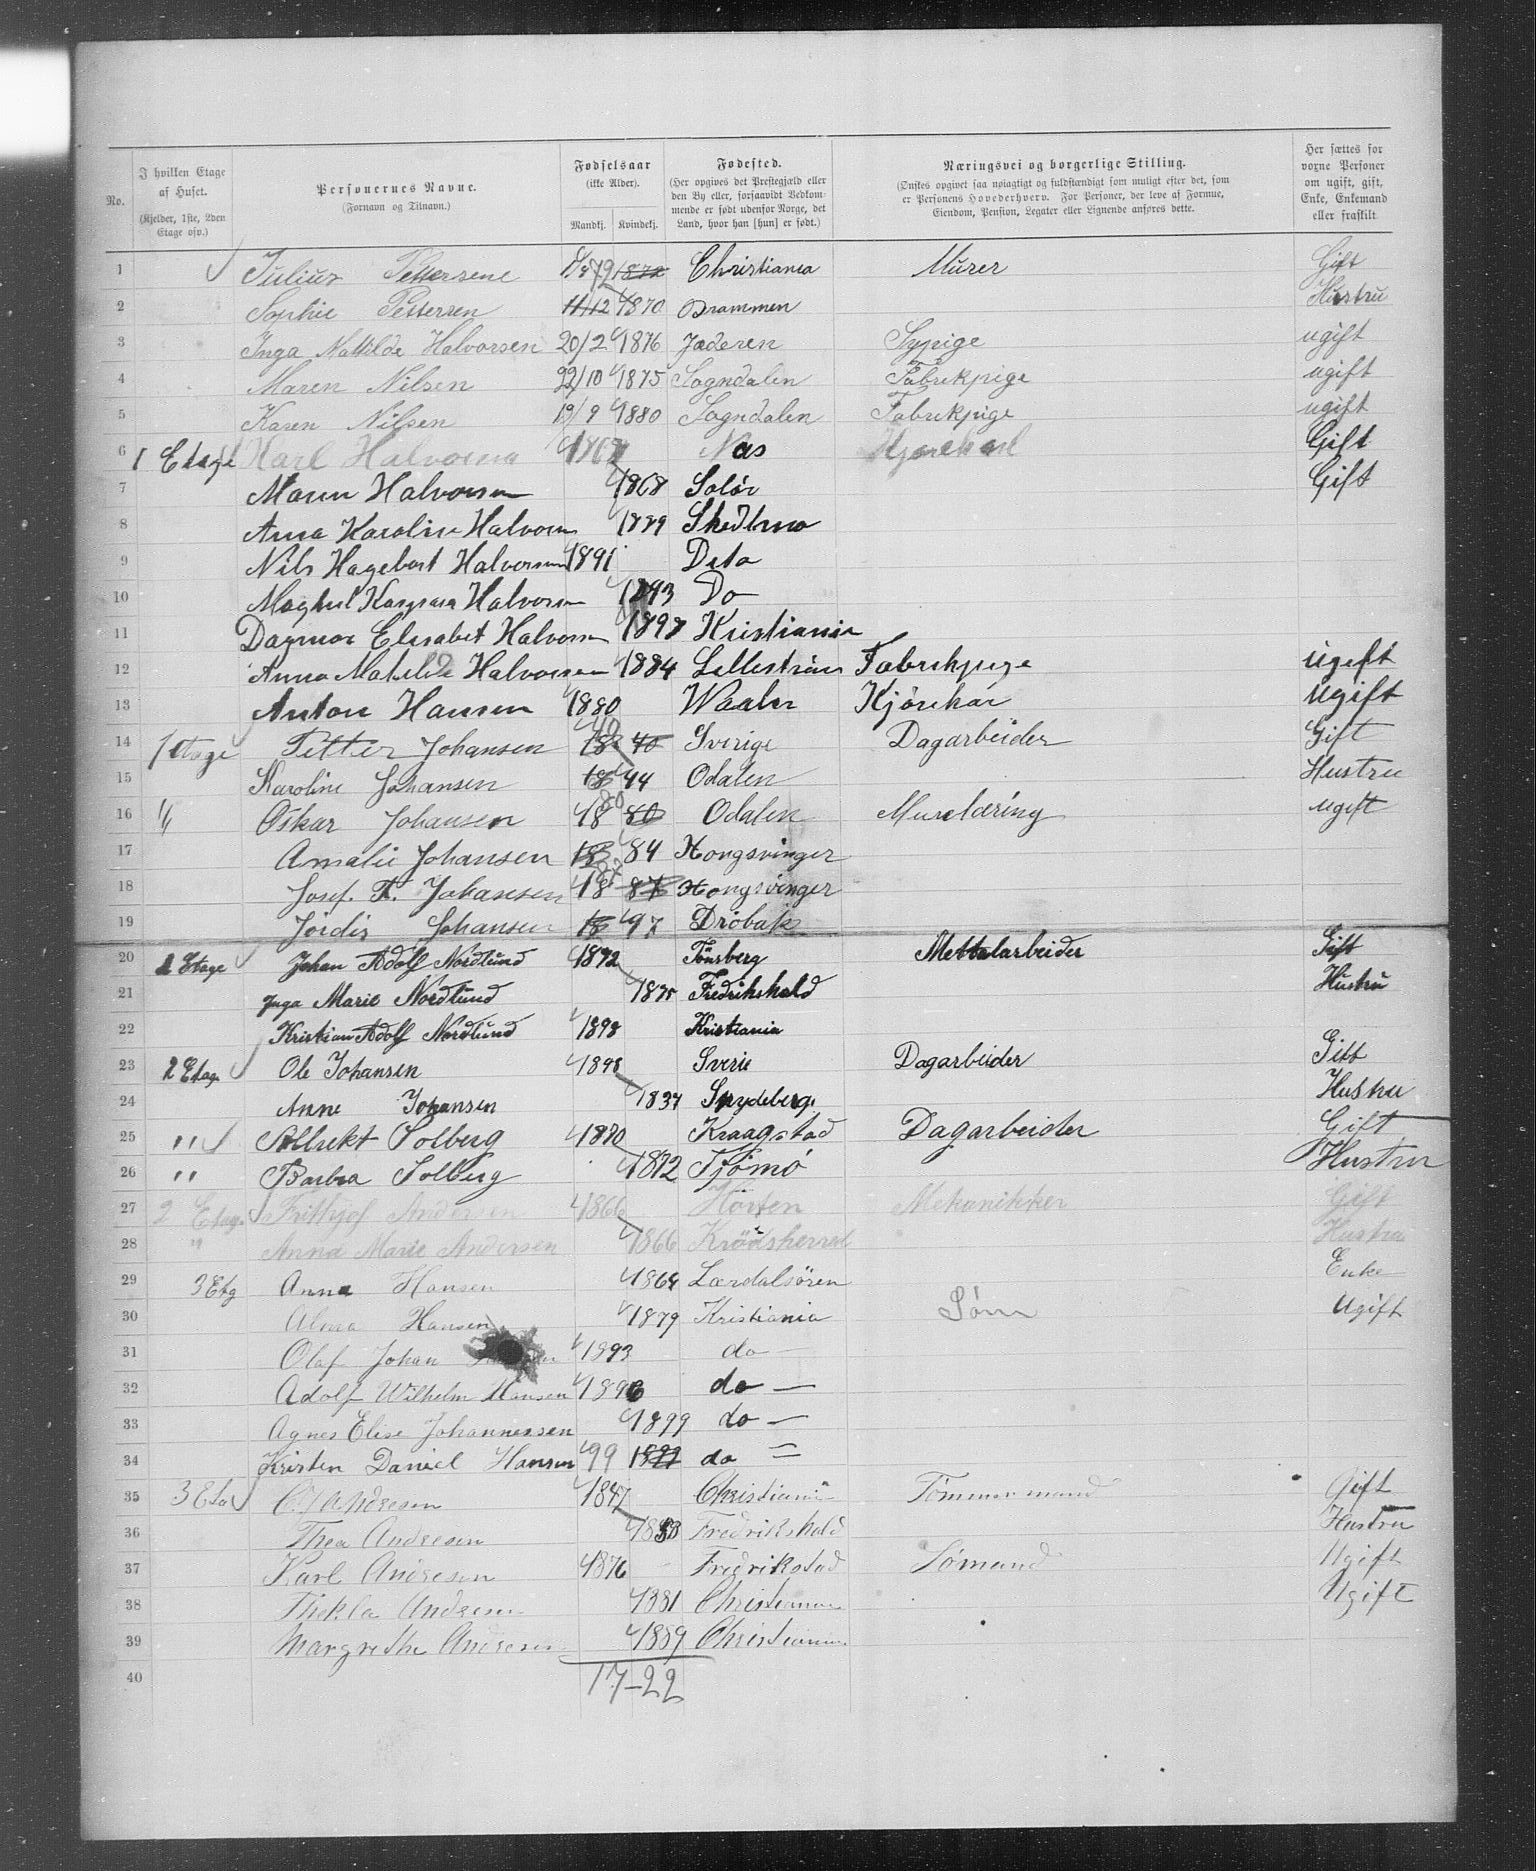 No.
I hvilken Etage af Huset. (Kjelder, 1ste, 2den Etage osv.)
Personernes Navne. (Fornavn og Tilnavn.)
Fødselsaar (ikke Alder). Mandkj. Kvindekj.
Fødested. (Her opgives det Prestegjæld eller den By eller, forsaavidt Vedkommende er født udenfor Norge, det Land, hvor han [hun] er født.)
Næringsvei og borgerlige Stilling. (Ønskes opgivet saa nøiagtigt og fuldstændigt som muligt efter det, som er Personens Hovederhverv. For Personer, der leve af Formue, Eiendom, Pension, Legater eller Lignende anføres dette.
Her sættes for vorne Personer om ugift, gift, Enke, Enkemand eller fraskilt
1 Julius Pettersene Christiania Murer Gift
2 Sophie Pettersen 11/12 1870 Drammen Hustru
3 Inga Mathilde Halvorsen 20/2 1876 Jæderen Sypige ugift
4 Maren Nilsen 22/10 1875 Sogndalen Fabrikpige ugift
5 Karen Nilsen 19/9 1880 Sogndalen Fabrikpige ugift
6 1 Etage Karl Halvorsen Næs Gift
7 Maren Halvorsen 1868 Solør Gift
8 Anna Karoline Halvorsen 1889 Skedsmo
9 Nils Hagebart Halvorsen 1891 Deto
10 Halvorsen 1893 Do
11 Dagmar Elisabet Halvorsen 1897 Kristiania
12 Anna Matilde Halvorsen 1884 Lillestrøm Fabrikpige ugift
13 Anton Hansen 1880 Waaler Kjørekar ugift
14 1 Etage Petter Johansen 18 40 Sverige Dagarbeider Gift
15 Karoline Johansen 18 44 Odalen Hustru
16 " Oskar Johansen 18 80 Odalen Murelæring ugift
17 Amalie Johansen 18 84 Kongsvinger
18 Josef. F. Johansen 18 87 Kongsvinger
19 Jordis Johansen 18 97 Drøbak
20 1 Etage Johan Adolf Nordlund 1872 Tønsberg Mettalarbeider Gift
21 Inga Marie Nordlund 1875 Fredrikshald Hustru
22 Kristian Adolf Nordlund 1898 Kristiania
23 2 Etag. Ole Johansen Sverie Dagarbeider Gift
24 Anne Johansen 1837 Spydeberg. Hustru
25 " Albrekt Solberg 1870 Kraagstad Dagarbeider Gift
26 " Barbra Solberg 1872 Tjømø Hustru
27 2 Etage Frithjof Andersen 1866 Horten Mekanikker Gift
28 " Anna Marie Andersen 1866 Krødsherred Hustru
29 3 Etg Anna Hansen Lærdalsøren Enke
30 Alma Hansen 1879 Kristiania Søm Ugift
31 Olaf Johan 1893 do —
32 Adolf Wilhelm Hansen 1896 do —
33 Agnes Elise Johannessen 1899 do —
34 Kristen Daniel Hansen 99 do —
35 3 Eta C. Andresen 1847 Christiania Tømmermand Gift
36 Thea Andresen Fredrikshald Hustru
37 Karl Andresen 1876 Fredrikstad Sømand Ugift
38 Thekla Andresen 1881 Christiania Ugift
39 Margrethe Andresen 1889 Christiania
40 17-22